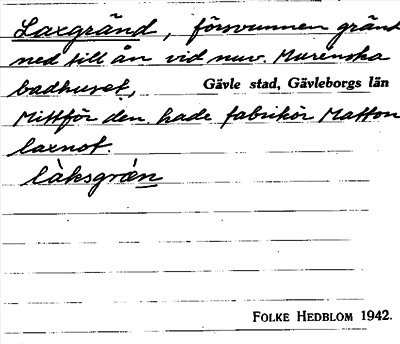 Laxgränd, försvunnen gränd
ned till ån vid nuv. Murénska
badhuset,
Gävle stad, Gävleborgs län
Mittför den hade fabrikör Matton
laxnot.
làksgrän
FOLKE HEDBLOM 1942.